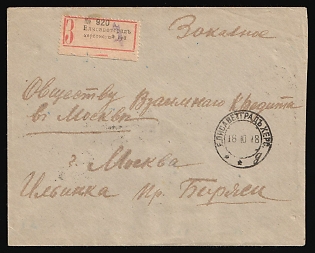 Заказное
З
№ 920
Елисаветградъ
Обществу Взаимнаго Кредита
въ Москвѣ
ЕЛИСАВЕТГРАДЪ ХЕРС.
18 10 18
г. Москва
Ильинка пр. Биржи